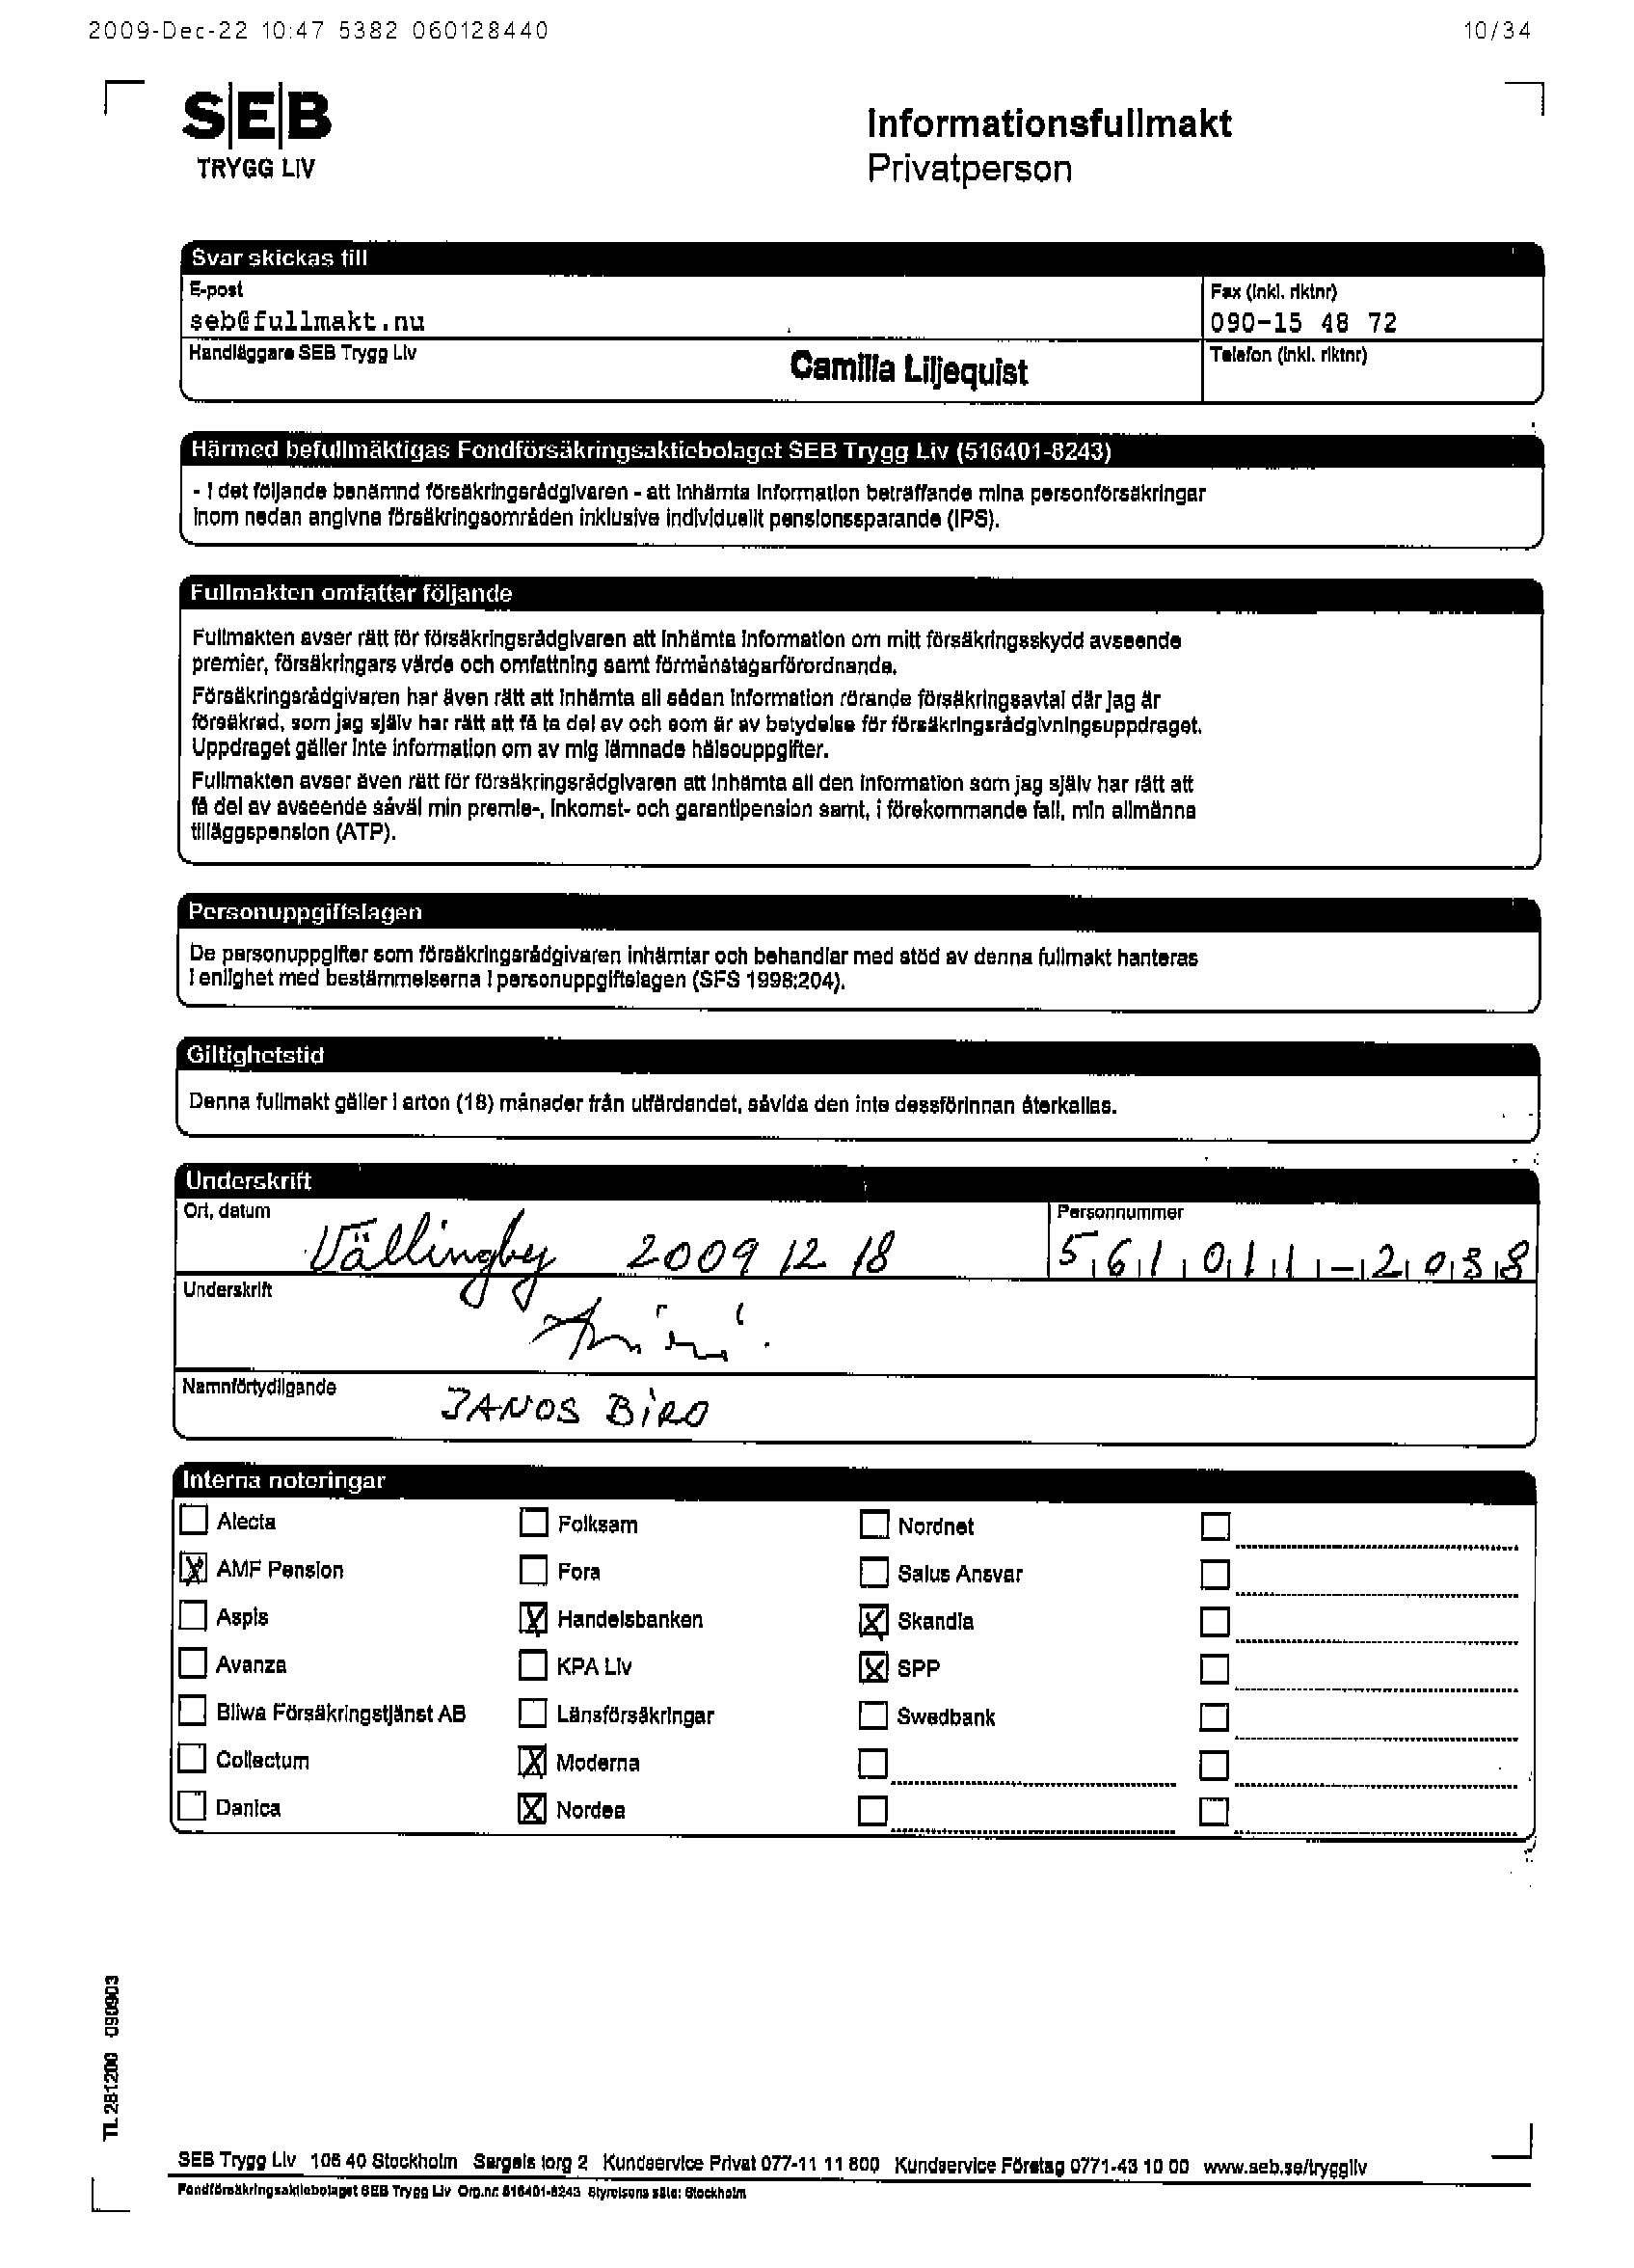 2009-Dec-22 10:47 5382 060128440 10/34
SEB
TRYGG LIV
Informationsfullmakt
Privatperson
Svar skickas till
E-post
seb@fullmakt.nu
Fax (inkl. riktnr)
090-15 48 72
Handläggare SEB Trygg Liv
Camilla Liljequist
Telefon (inkl. riktnr)
Härmed befullmäktigas Fondförsäkringsaktiebolaget SEB Trygg Liv (516401-8243)
- I det följande benämnd försäkringsrådgivaren - att inhämta information beträffande mina personförsäkringar
inom nedan angivna försäkringsområden inklusive individuellt pensionssparande (IPS).
Fullmakten omfattar följande
Fullmakten avser rätt för försäkringsrådgivaren att inhämta information om mitt försäkringsskydd avseende
premier, försäkringars värde och omfattning samt förmånstagarförordnande.
Försäkringsrådgivaren har även rätt att inhämta all sådan information rörande försäkringsavtal där jag är
försäkrad, som jag själv har rätt att få ta del av och som är av betydelse för försäkringsrådgivningsuppdraget.
Uppdraget gäller inte information om av mig lämnade hälsouppgifter.
Fullmakten avser även rätt för försäkringsrådgivaren att inhämta all den information som jag själv har rätt att
få del av avseende såväl min premie-, inkomst- och garantipension samt, i förekommande fall, min allmänna
tilläggspension (ATP).
Personuppgiftslagen
De personuppgifter som försäkringsrådgivaren inhämtar och behandlar med stöd av denna fullmakt hanteras
i enlighet med bestämmelserna i personuppgiftslagen (SFS 1998:204).
Giltighetstid
Denna fullmakt gäller i arton (18) månader från utfärdandet, såvida den inte dessförinnan återkallas.
Underskrift
Ort, datum
Vällingby 2009 12 18
Personnummer
561011-2038
Underskrift
Namnförtydligande
JANOS BiRO
Interna noteringar
Alecta Folksam Nordnet
X AMF Pension Fora Salus Ansvar
Aspis X Handelsbanken X Skandia
Avanza KPA Liv X SPP
Bliwa Försäkringstjänst AB Länsförsäkringar Swedbank
Collectum X Moderna
Danica X Nordea
TL281200 090903
SEB Trygg Liv 106 40 Stockholm Sergels torg 2 Kundservice Privat 077-11 11 800 Kundservice Företag 0771-43 10 00 www.seb.se/tryggliv
Fondförsäkringsaktiebolaget SEB Trygg Liv Org.nr: 516401-8243 Styrelsens säte: Stockholm